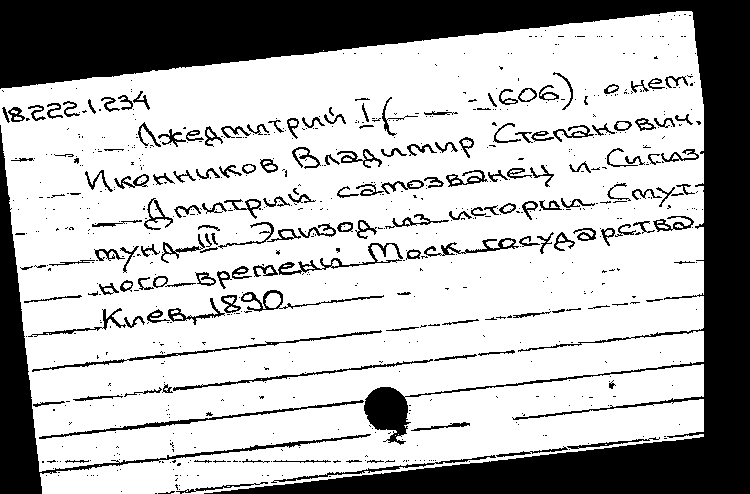 18.222.1.234
Лжедмитрий I (—— -1606), о нем.
Иконников, Владимир Степанович.
Дмитрий самозванец и Сигиз-
мунд III. Эпизод из истории Смут-
ного времени Моск. государства.
Киев, 1890.